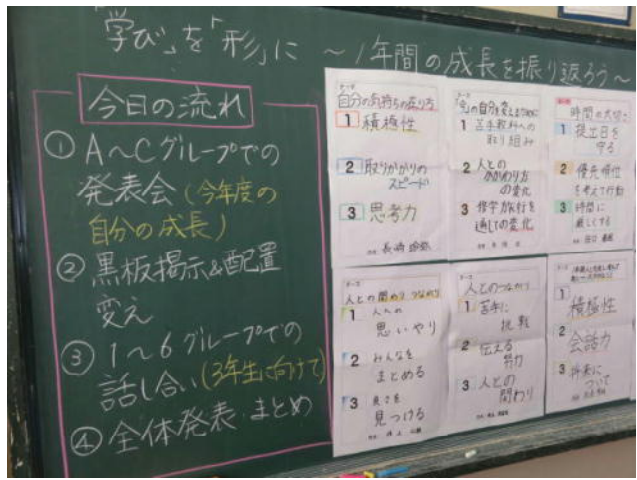 「学び」を「形」に ～1年間の成長を振り返ろう～
今日の流れ
① A～Cグループでの
発表会(今年度の
自分の成長)
② 黒板掲示&配置
変え
③ 1～6グループでの
話し合い(3年生に向けて)
④ 全体発表・まとめ
テーマ
自分の気持ちの在り方
1 積極性
2 取りかかりの
スピード
3 思考力
1 苦手教科への
取り組み
2 人との
かかわり方
の変化
3 修学旅行を
通しての変化
時間の大切さ
1 提出日を
守る
2 優先順位
を考えて行動
3 時間に
厳しくする
テーマ
人との関わり つながり
1 人への
思いやり
2 みんなを
まとめる
3 良さを
見つける
テーマ
人とのつながり
1 苦手に
挑戦
2 伝える
努力
3 人との
関わり
テーマ
1 積極性
2 会話力
3 将来に
ついて